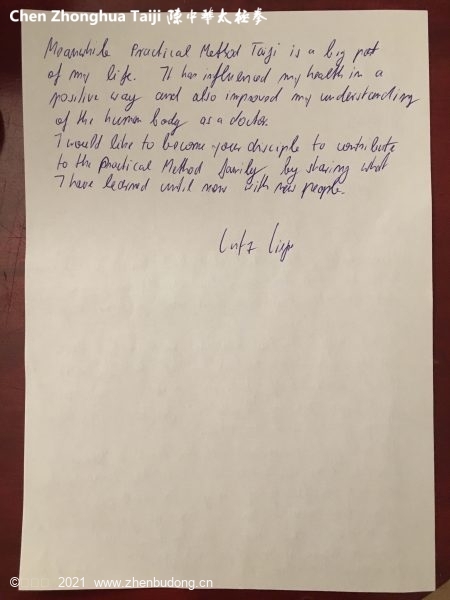 Chen Zhonghua Taiji 陳中華太極拳
Meanwhile Practical Method Taiji is a big part
of my life. It has influenced my health in a
positive way and also improved my understanding
of the human body as a doctor.
I would like to become your disciple to contribute
to the Practical Method family by sharing what
I have learned until now with new people.
Lutz
2021 www.zhenbudong.cn